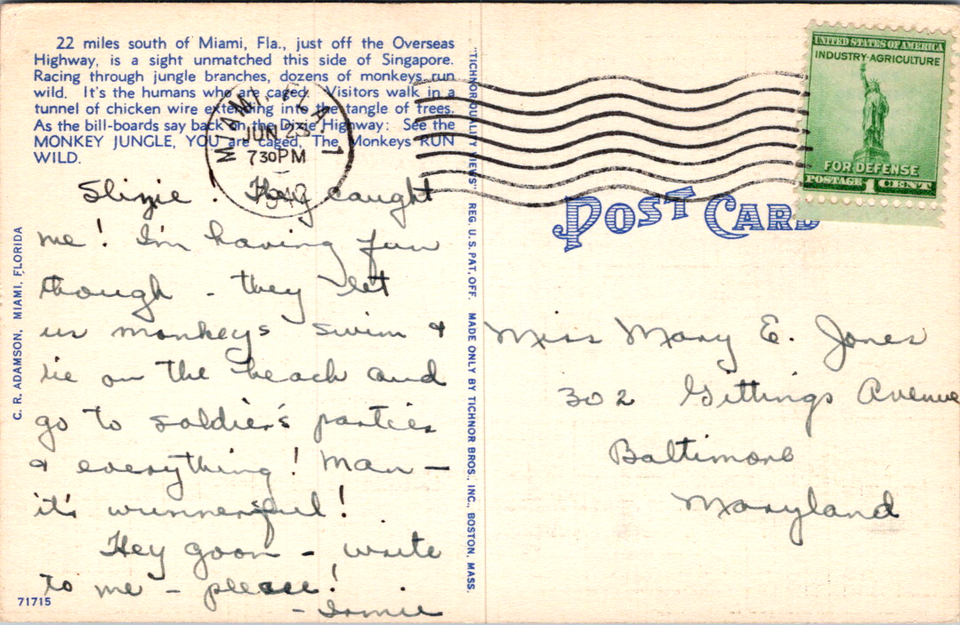 22 miles south of Miami, Fla., just off the Overseas
Highway, is a sight unmatched this side of Singapore.
Racing through jungle branches, dozens of monkeys run
wild. It's the humans who are caged. Visitors walk in a
tunnel of chicken wire extending into the tangle of trees.
As the bill-boards say back on the Dixie Highway: See the
MONKEY JUNGLE, YOU are caged, The Monkeys RUN
WILD.
MIAMI
JUN 23
730PM
They caught
me! I'm having fun
though - they let
us monkeys swim &
lie on the beach and
go to soldier's parties
& everything! Man —
it's wunnerful!
Hey goon - write
to me - please!
71715
C. R. ADAMSON, MIAMI, FLORIDA
"TICHNOR QUALITY VIEWS" REG. U. S. PAT. OFF. MADE ONLY BY TICHNOR BROS., INC., BOSTON, MASS.
UNITED STATES OF AMERICA
INDUSTRY-AGRICULTURE
FOR DEFENSE
POSTAGE 1 CENT
POST CARD
Miss Mary E. Jones
302 Gittings Avenue
Baltimore
Maryland